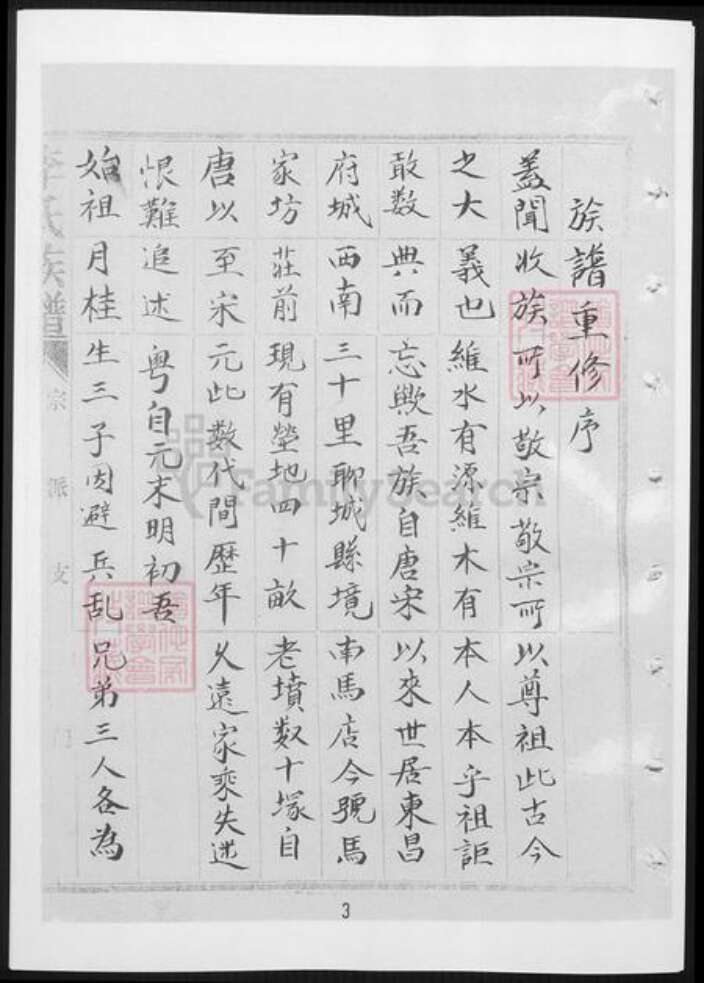 族譜重修序
蓋聞收族所以敬宗敬宗所以尊祖此古今
之大義也維水有源維木有本人本乎祖詎
敢数典而忘歟吾族自唐宋以來世居東昌
府城西南三十里聊城縣境南馬店今號馬
家坊莊前現有塋地四十畝老墳数十塚自
唐以至宋元此数代間歷年久遠家乘失迷
恨難追述粤自元末明初吾
始祖月桂生三子因避兵乱兄弟三人各為
李氏族譜
宗派支
FamilySearch
3